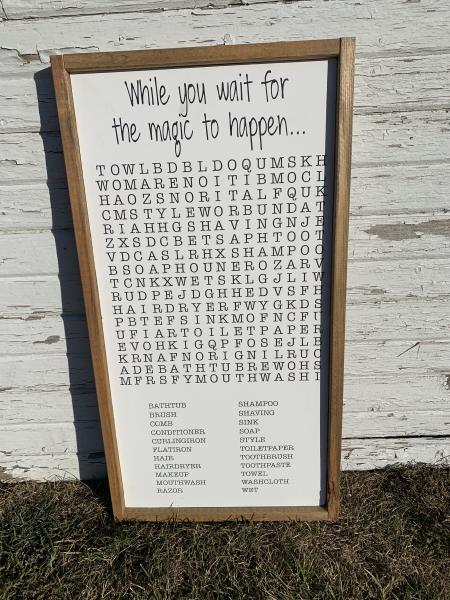 While you wait for
the magic to happen...
TOWLBDBLDOQUMSKH
WOMARENOITIBMOCL
HAOZSNORITALFQUK
CMSTYLEWORBUNDAT
RIAHHGSHAVINGNJE
ZXSDCBETSAPHTOOT
VDCASLRHXSHAMPOO
BSOAPHOUNEROZARV
TCNKXWETSKLGJLIW
RUDPEJDGHHEDVSFH
HAIRDRYERFWYGKDS
PBTEFSINKMOFNCFU
UFIARTOILETPAPER
EVOHKIGQPFOSEJLB
KRNAFNORIGNILRUC
ADEBATHTUBREWOHS
MFRSFYMOUTHWASHI
BATHTUB
BRUSH
COMB
CONDITIONER
CURLINGIRON
FLATIRON
HAIR
HAIRDRYER
MAKEUP
MOUTHWASH
RAZOR
SHAMPOO
SHAVING
SINK
SOAP
STYLE
TOILETPAPER
TOOTHBRUSH
TOOTHPASTE
TOWEL
WASHCLOTH
WET